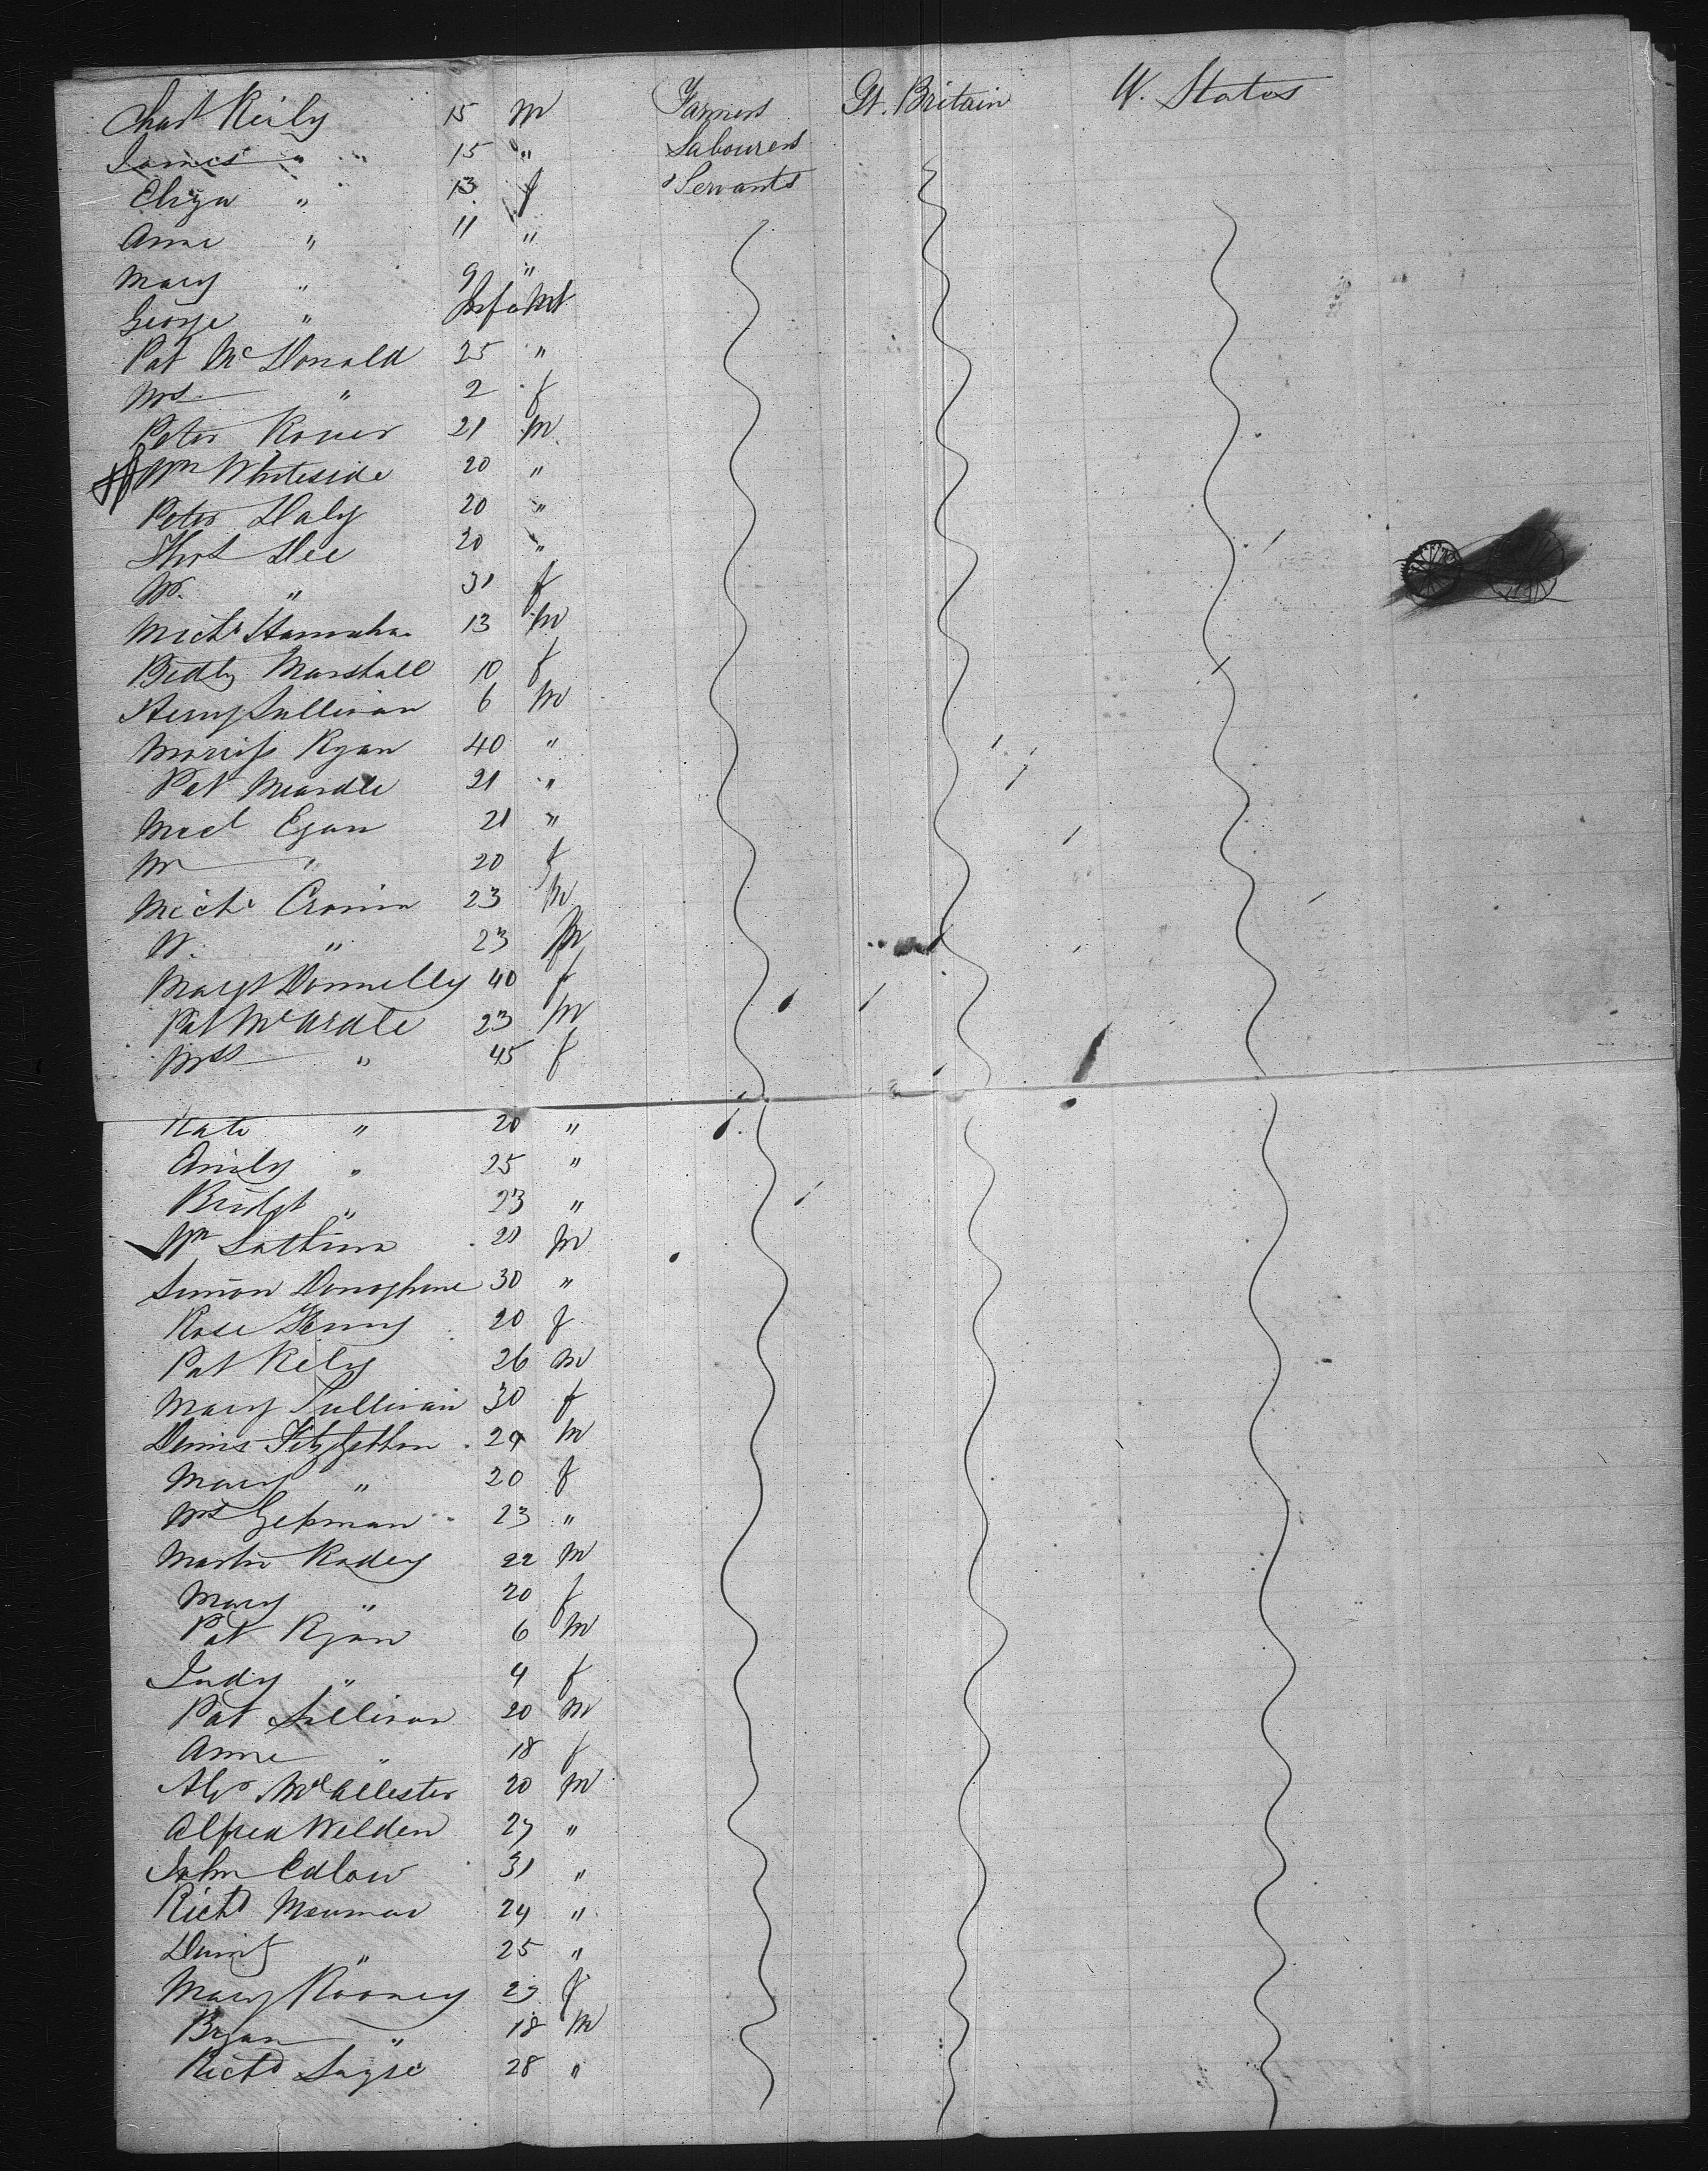 Chas Reily 15 M Farmers Gt. Britain U. States
James " 15 " Labourers
Eliza " 13 f Servants
Anne " 11 "
Mary " 9 "
George " Infant
Pat McDonald 25 "
Mrs " 2 f
Peter 21 M
Wm Whiteside 20 "
Peter Daly 20 "
Thos Dee 20 "
" 31 f
Mich 13 M
Bidly Marshall 10 f
Henry Sullivan 6 M
Morriss Ryan 40 "
Pat Meardle 21 "
Micl Egan 21 "
M " 20 f
Michl Cronin 23 M
" 23
Margt Donnelly 40 f
Pat McArdle 23 M
Mrs " 45 f
Kate " 20 "
Emily " 25 "
Bridgt " 23 "
Wm 21 M
Simon Donoghue 30 "
Rose 20 f
Pat Rely 26 M
Mary Sullivan 30 f
Dennis Fitzgibbon 24 M
Mary " 20 f
Mrs Gessman 23 "
Martin Kadey 22 M
Mary " 20 f
Pat Ryan 6 M
Judy " 4 f
Pat Sullivan 20 M
Anne " 18 f
Alx McAllester 20 M
Alfred Wilden 27 "
John Edlow 31 "
Richd 24 "
" 25 "
Mary Rooney 23 f
Bryan " 18 M
Richd Sayre 28 "